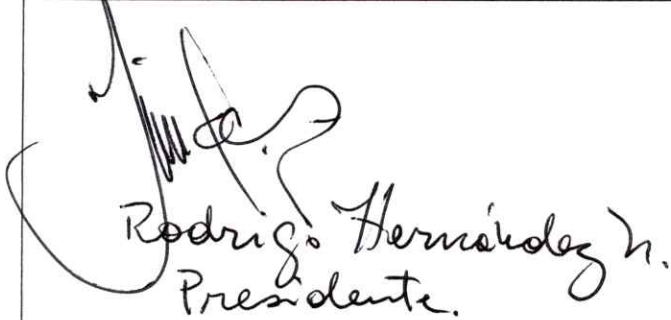 Rodrigo Hernández N.
Presidente.